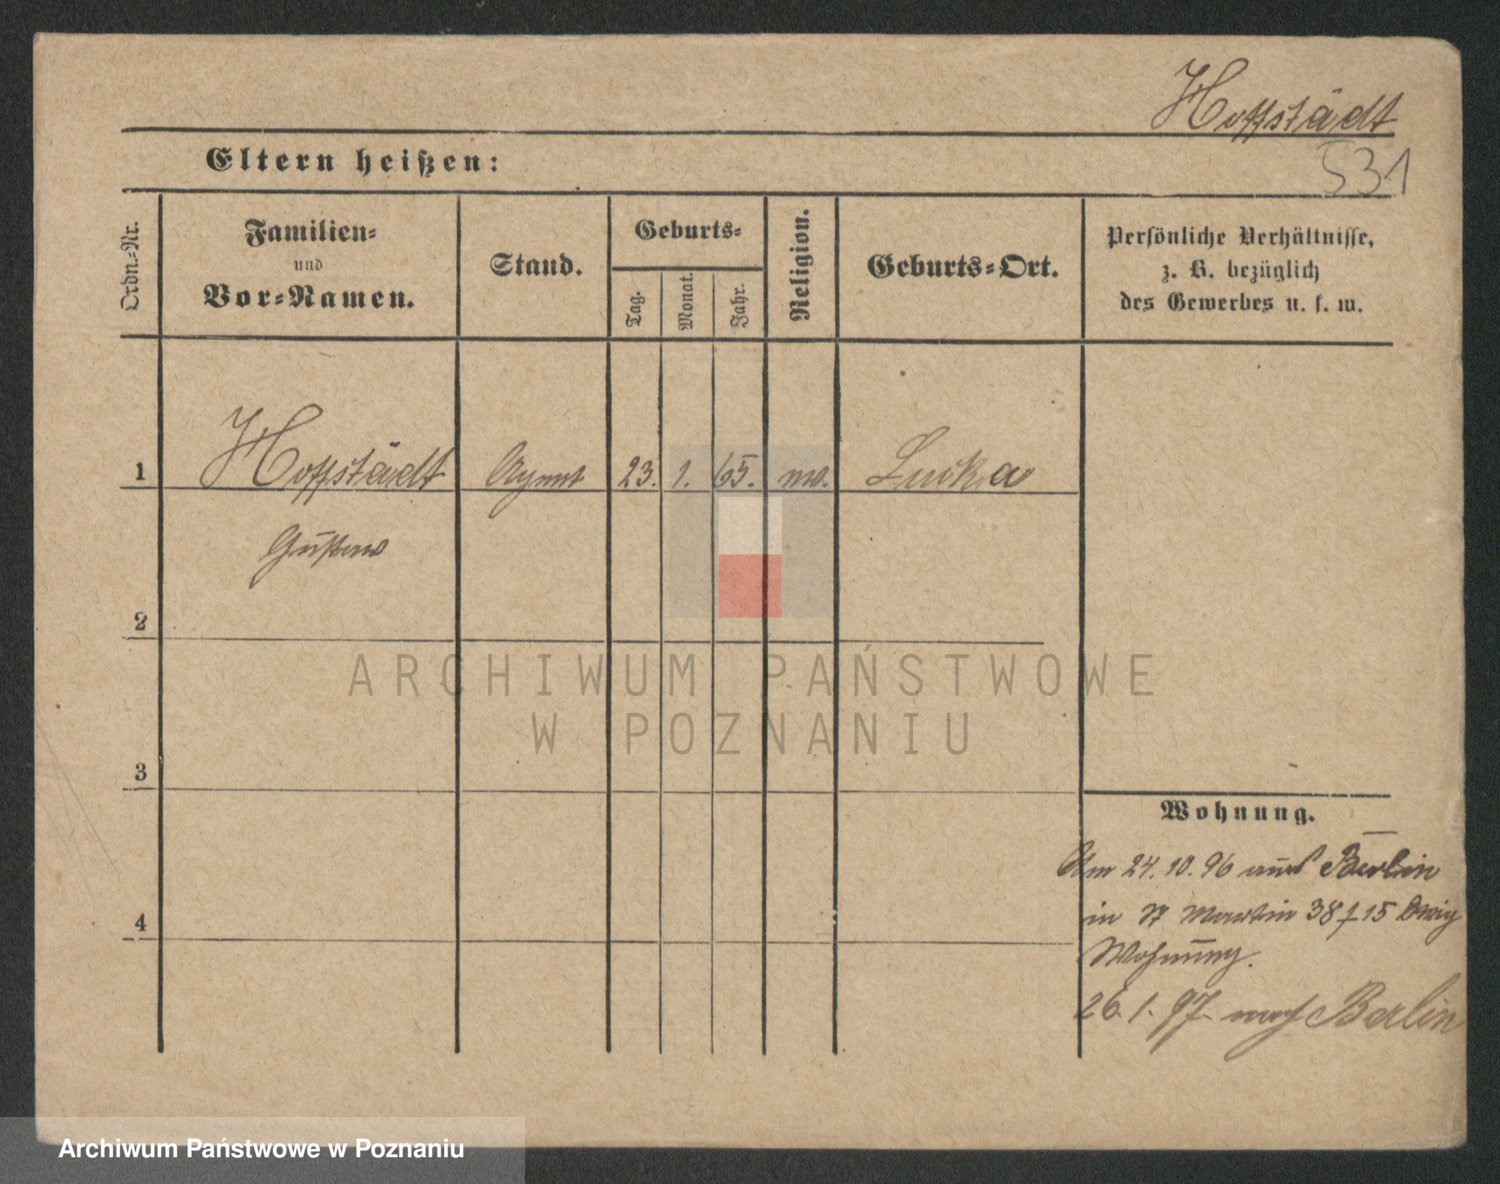 Hoffstädt
531
Eltern heißen:
Ordn.-Nr.
Familien-
und
Vor-Namen.
Stand.
Geburts-
Tag.
Monat.
Jahr.
Religion.
Geburts-Ort.
Persönliche Verhältnisse,
z. B. bezüglich
des Gewerbes u. s. w.
1 Hoffstädt Agent 23. 1. 65. mos. Lucka
Gustav
2
3
4
ARCHIWUM PAŃSTWOWE
W POZNANIU
Wohnung.
Am 24.10.96 aus Berlin
in St Martin 38 f 15
Wohnung.
26.1.97 nach Berlin
Archiwum Państwowe w Poznaniu